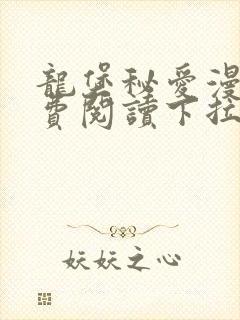 龍堡秘愛漫
費閱讀下拉
妖妖之心